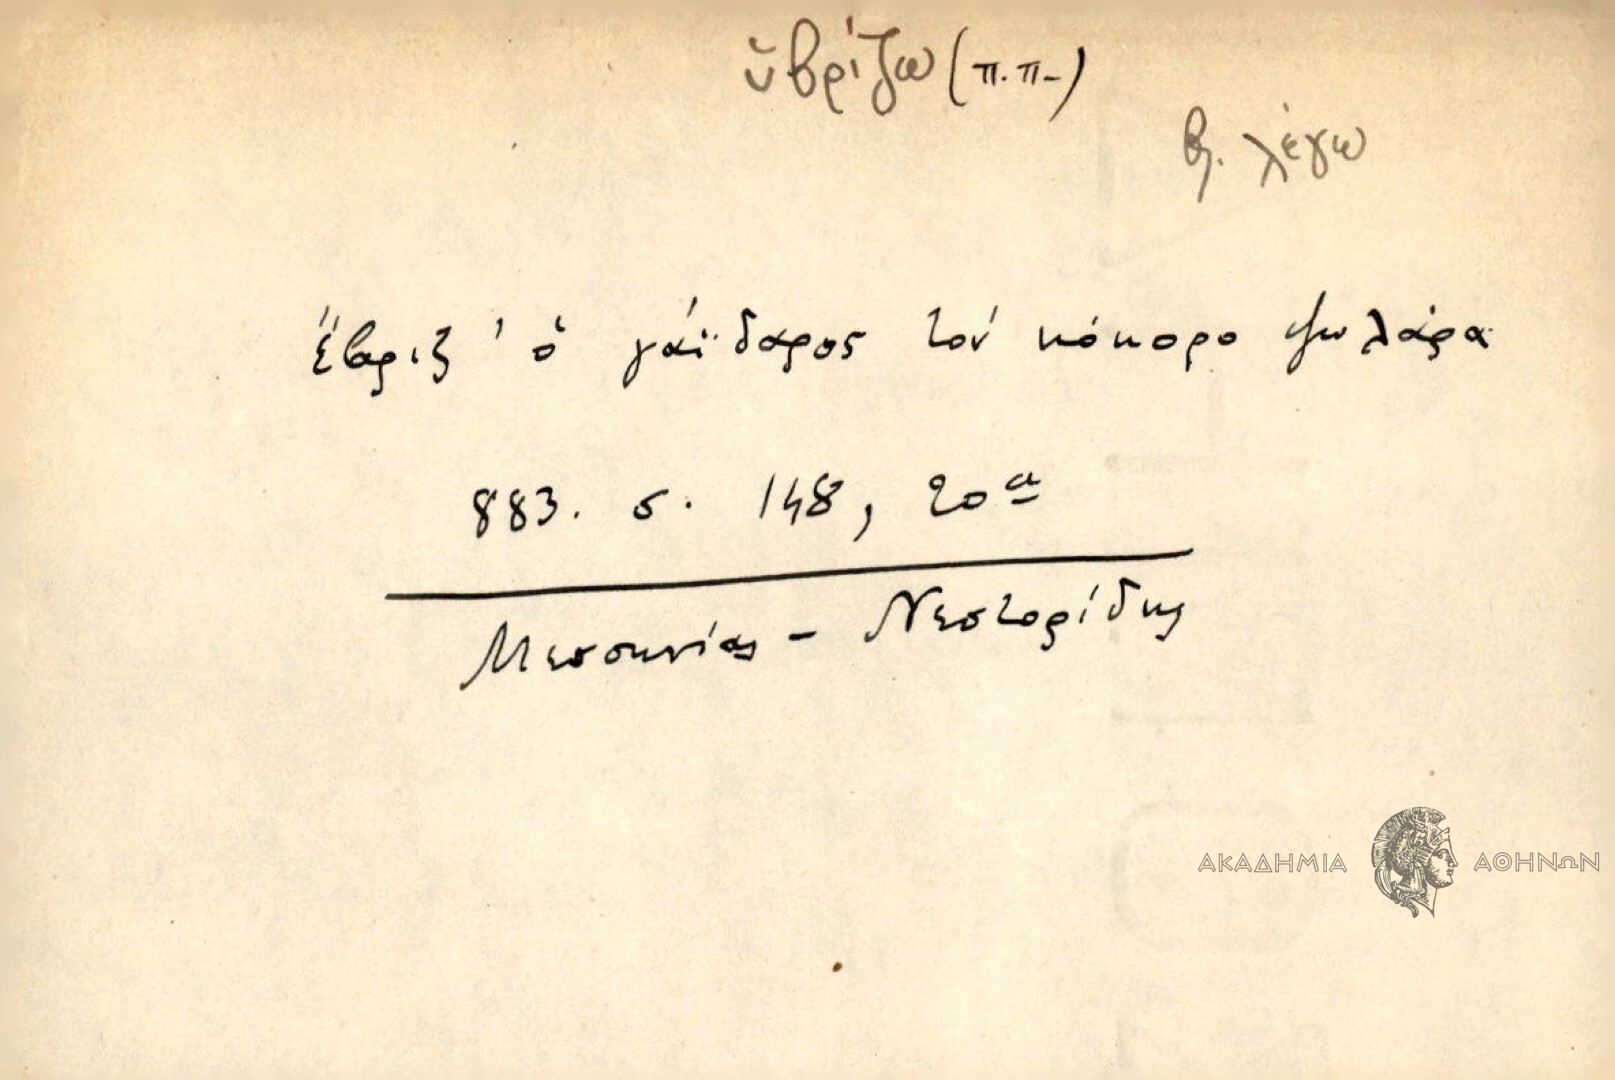 ὑβρίζω (π.π-)
βλ. λέγω
ἔβριξ' ὁ γάϊδαρος τόν κόκορο ψωλάρα
883. σ. 148, 20α
Μεσσηνίας - Νεστορίδης
ΑΚΑΔΗΜΙΑ ΑΘΗΝΩΝ